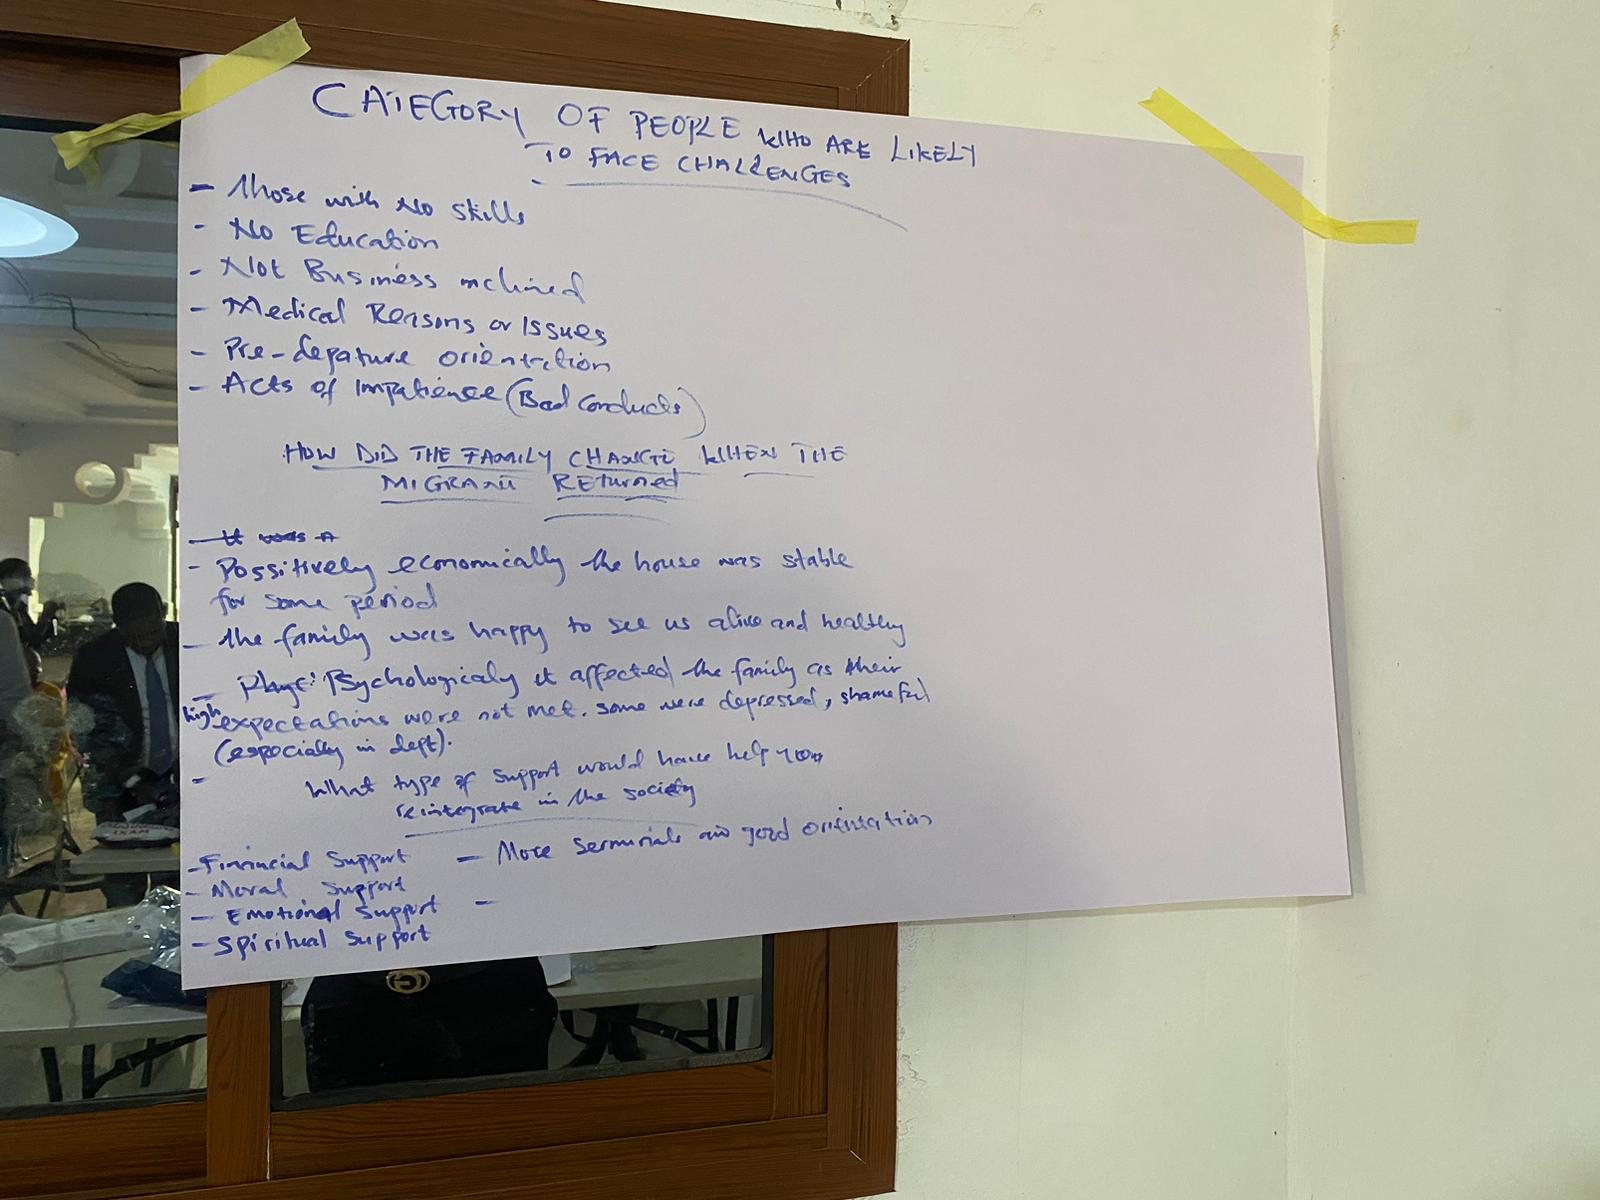 CATEGORY OF PEOPLE WHO ARE LIKELY
TO FACE CHALLENGES
- Those with No skills
- No Education
- Not Business inclined
- Medical Reasons or Issues
- Pre-depature orientation
- Acts of Impatience (Bad Conducts)
HOW DID THE FAMILY CHANGE WHEN THE
MIGRANT RETurned
- It was A
- Possitively economically the house was stable
for some period
- the family was happy to see us alive and healthy
- Psychologicaly it affected the family as their
high expectations were not met. some were depressed, shameful
(especially in dept).
-
What type of support would have help you
reintegrate in the society
- Financial Support
- More and good orientation
- Moral Support
- Emotional Support -
- Spiritual Support